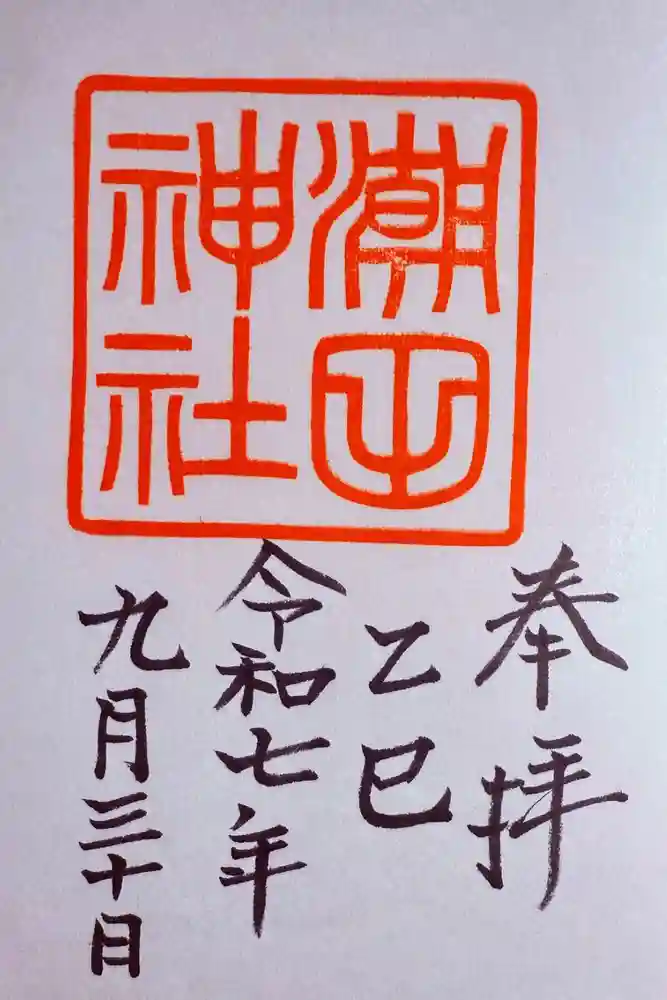 潮田
神社
奉拝
乙巳
令和七年
九月三十日